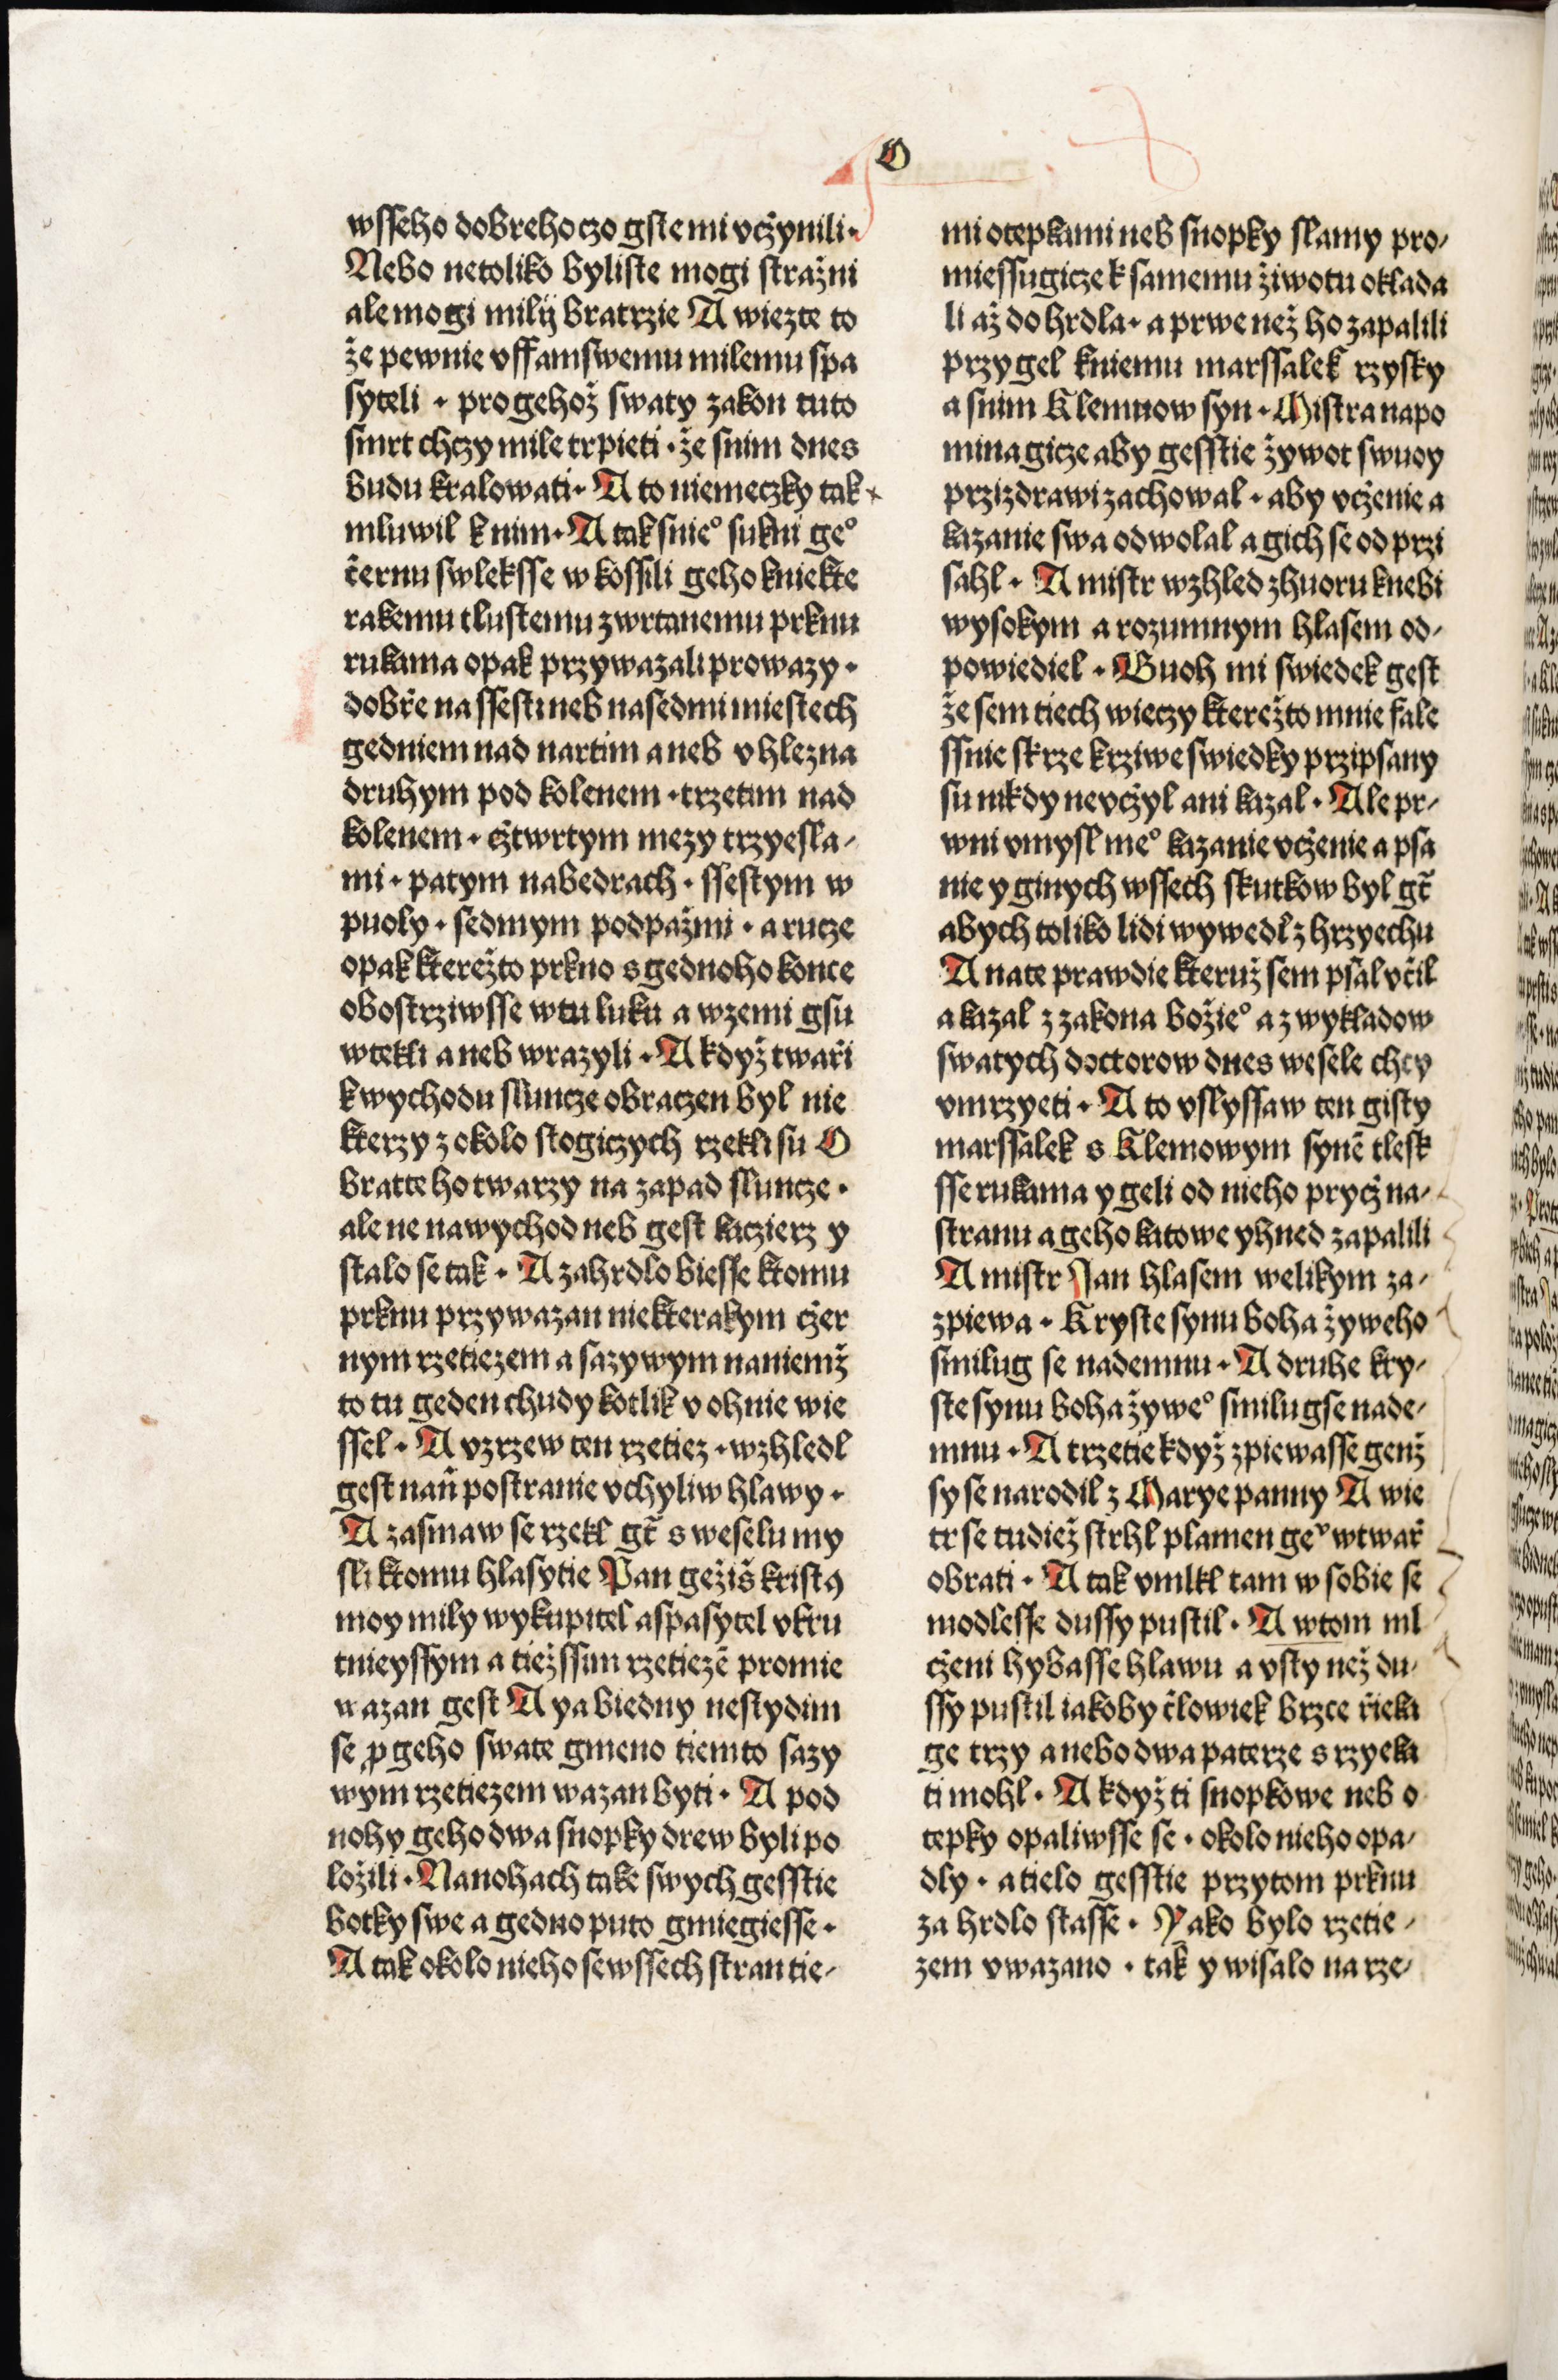 O
wsseho dobreho czo gste mi vczynili·
Nebo netoliko byliste mogi stražni
ale mogi milij bratrzie A wiezte to
že pewnie vffam swemu milemu spa
syteli · pro gehož swaty zakon tuto
smrt chczy mile trpieti · že snim dnes
budu kralowati· A to niemeczky tak
mluwil k nim· A tak snieº sukni geº
černu swleksse w kossili geho kniekte
rakemu tlustemu zwrtanemu prknu
rukama opak przywazali prowazy·
dobře na ssesti neb na sedmi miestech
gedniem nad nartim aneb v hlezna
druhym pod kolenem · trzetim nad
kolenem · cžtwrtym mezy trzyesla/
mi · patym na bedrach · ssestym w
puoly · sedmym podpažmi · a rucze
opak kterežto prkno s gednoho konce
obostrziwsse wtu luku a wzemi gsu
wtekli aneb wrazyli · A když twaři
k wychodu sluncze obraczen byl nie
kterzy z okolo stogiczych rzekli su O
bratte ho twarzy na zapad sluncze ·
ale ne nawychod neb gest kaczierz y
stalo se tak · A zahrdlo biesse ktomu
prknu przywazan niekterakym cžer
nym rzetiezem a sazywym naniemž
to tu geden chudy kotlik v ohnie wie
ssel · A vzrzew ten rzetiez · wzhledl
gest naň postranie vchyliw hlawy ·
A zasmaw se rzekl gt̃ s weselu my
sli ktomu hlasytie Pan gežiš kristꝯ
moy mily wykupitel a spasytel vkru
tnieyssym a tiežssim rzetiezē promie
wazan gest A ya biedny nestydim
se ꝓ geho swate gmeno tiemto sazy
wym rzetiezem wazan byti · A pod
nohy geho dwa snopky drew byli po
ložili · Na nohach take swych gesstie
botky swe a gedno puto gmiegiesse ·
A tak okolo nieho sewssech stran tie/
mi otepkami neb snopky slamy pro/
miessugicze k samemu žiwotu oklada
li až do hrdla· a prwe než ho zapalili
przygel kniemu marssalek rzysky
a snim Klemnow syn · Mistra napo
minagicze aby gesstie žywot swuoy
przizdrawi zachowal · aby vcženie a
kazanie swa odwolal a gich se odprzi
sahl · A mistr wzhled zhuoru knebi
wysokym a rozumnym hlasem od/
powiediel · Buoh mi swiedek gest
že sem tiech wieczy kterežto mnie fale
ssnie skrze krziwe swiedky przipsany
su nikdy nevcžyl ani kazal · Ale pr/
wni vmysl meº kazanie vcženie a psa
nie y ginych wssech skutkow byl gt̃
abych toliko lidi wywedl z hrzyechu
A na te prawdie kteruž sem psal včil
a kazal z zakona božieº a z wykladow
swatych doctorow dnes wesele chcy
vmrzyeti · A to vslyssaw ten gisty
marssalek s Klemowym synē tlesk
sse rukama y geli od nieho prycž na/
stranu a geho katowe yhned zapalili
A mistr Jan hlasem welikym za/
zpiewa · Kryste synu boha žyweho
smilug se nademnu · A druhe kry/
ste synu boha žyweº smilug se nade/
mnu · A trzetie když zpiewasse genž
sy se narodil z Marye panny A wie
tr se tudiež strhl plamen geº wtwař
obrati · A tak vmlkl tam w sobie se
modlesse dussy pustil · A wtom ml
cženi hybasse hlawu a vsty než du/
ssy pustil iakoby člowiek brzce řieka
ge trzy anebo dwa paterze s rzyeka
ti mohl · A když ti snopkowe neb o
tepky opaliwsse se · okolo nieho opa/
dly · a tielo gesstie przytom prknu
za hrdlo stasse · Yako bylo rzetie/
zem vwazano · tak y wisalo na rze/